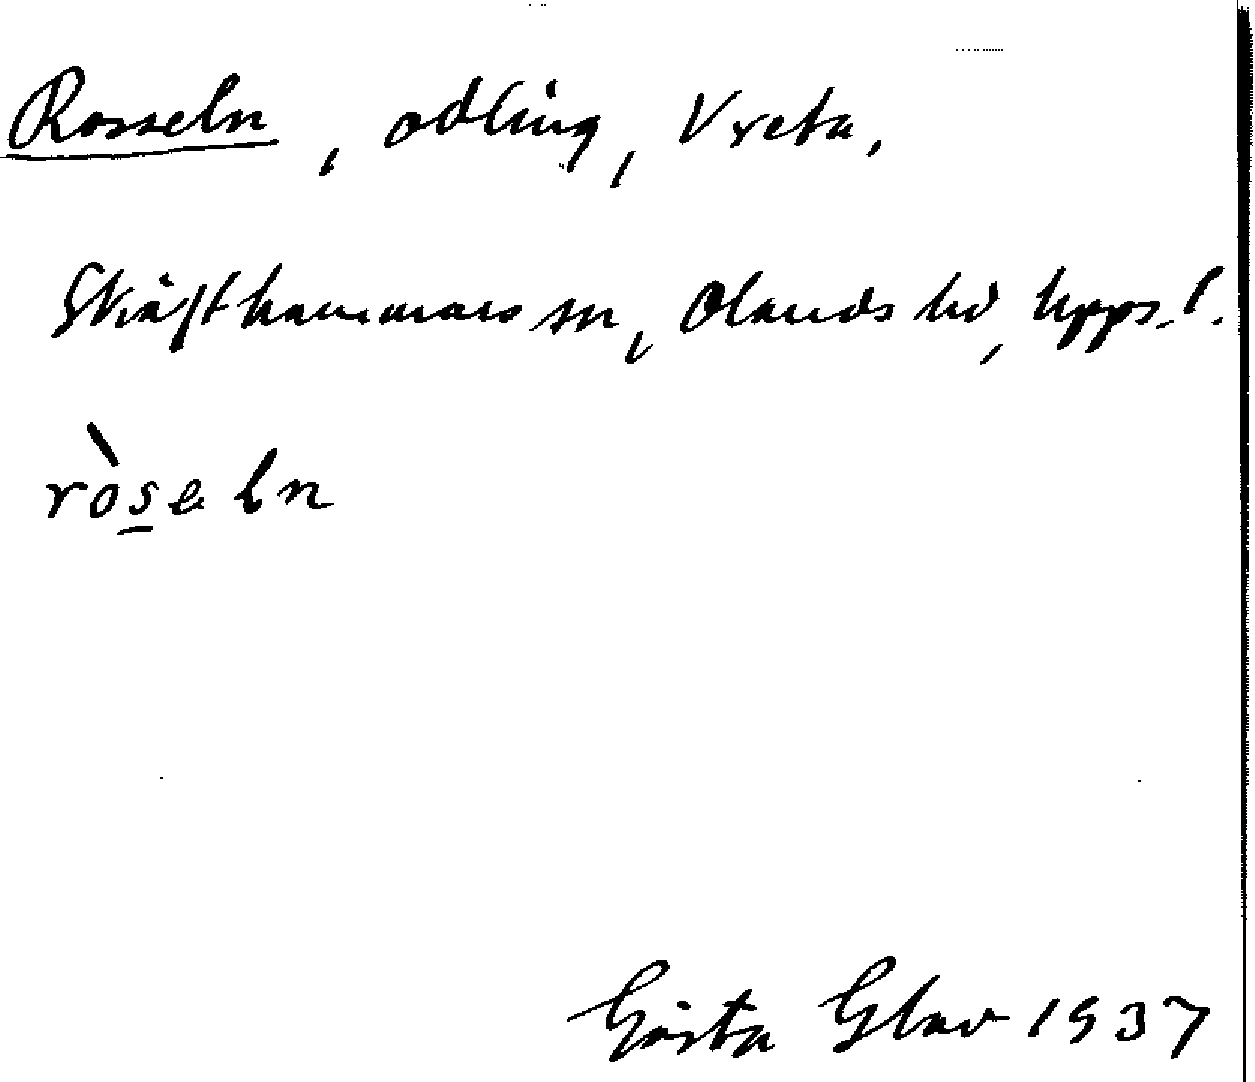 Rosseln, odling, Vreta,
Skäfthammars sn, Olands hd, Upps. l.
ròseln
Gösta Glav 1937